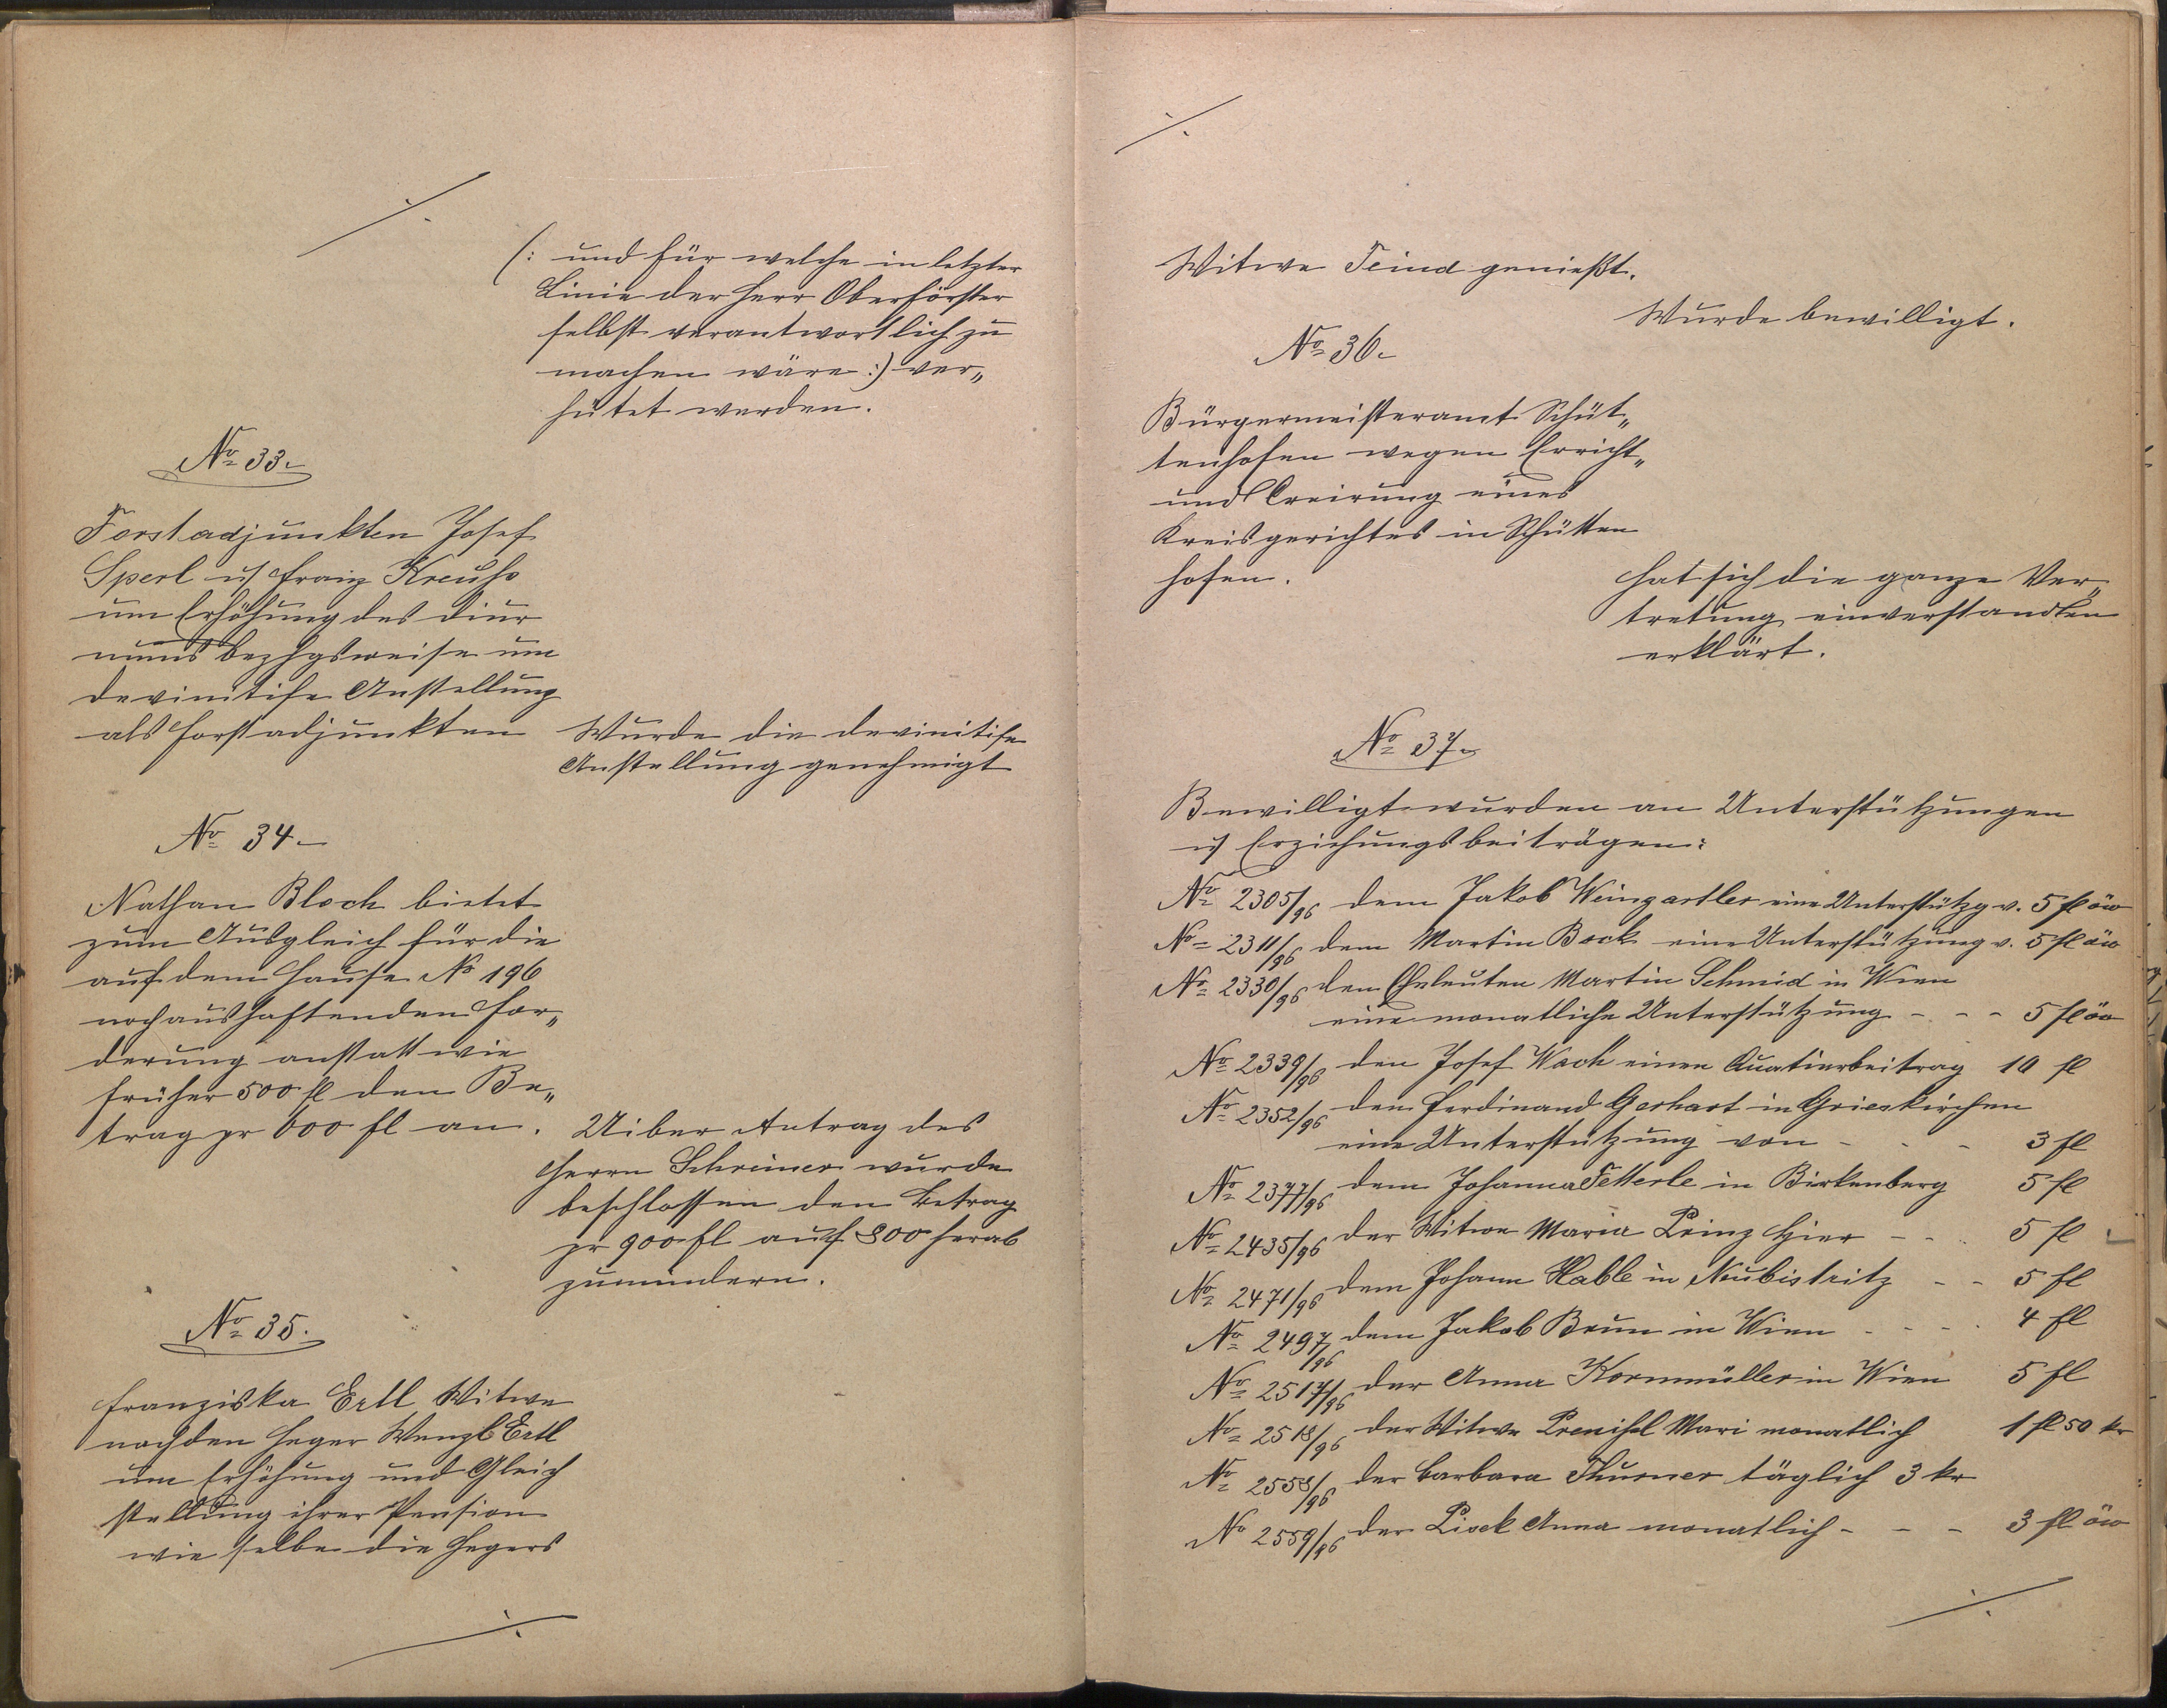 ./.
(: und für welche in letzter
Linie der Herr Oberförster
selbst verantwortlich zu
machen wäre :) ver„
hütet werden.
No 33.
Forstadjunkten Josef
Sperl u Franz Kreuhs
um Erhöhung des Diur
nums bezhgsweise um
devinitife Anstellung
als Forstadjunkten
Wurde die devinitife
Anstellung genehmigt
No 34
Nathan Bloch bietet
zum Ausgleich für die
auf dem Hause No 196
noch aushaftenden For„
derung anstatt wie
früher 500 fl den Be„
trag pr 600 fl an.
Uiber Antrag des
Herrn Schreiner wurde
beschlossen den Betrag
pr 900 fl auf 800 herab
zumindern.
No 35.
Franziska Ertl Witwe
nach den Heger Wenzl Ertl
um Erhöhung und Gleich
stellung ihrer Pension
wie selbe die Hegers
./.
./.
Witwe Feind genießt.
Wurde bewilligt.
No 36.
Bürgermeisteramt Schüt„
tenhofen wegen Erricht„
und Creirung eines
Kreisgerichtes in Schütten
hofen.
Hat sich die ganze Ver„
tretung einverstanden
erklärt.
No 37.
Bewilligt wurden an Unterstützungen
u Erziehungsbeiträgen:
No 2305/96 dem Jakob Weingartler eine Unterstützg v. 5 fl öw
No 2311/96 dem Martin Bock eine Unterstützung v. 5 fl öw
No 2330/96 den Eheleuten Martin Schmid in Wien
eine monatliche Unterstützung - - - 5 fl öw
No 2339/96 den Josef Wach einen Quatierbeitrag 10 fl
No 2352/96 dem Ferdinand Gerhart in Grieskirchen
eine Unterstützung von - - - 3 fl
No 2377/96 dem Johanna Fetterle in Birkenberg 5 fl
No 2435/96 der Witwe Maria Prinz hier - - - 5 fl
No 2471/96 dem Johann Hable in Neubistritz - - 5 fl
No 2497/96 dem Jakob Brun in Wien - - - - 4 fl
No 2517/96 der Anna Kornmüller in Wien 5 fl
No 2518/96 der Witwe Mari monatlich 1 fl 50 kr
No 2558/96 der Barbara Thurner täglich 3 kr
No 2559/96 der Lisek Anna monatlich - - - 3 fl öw
./.